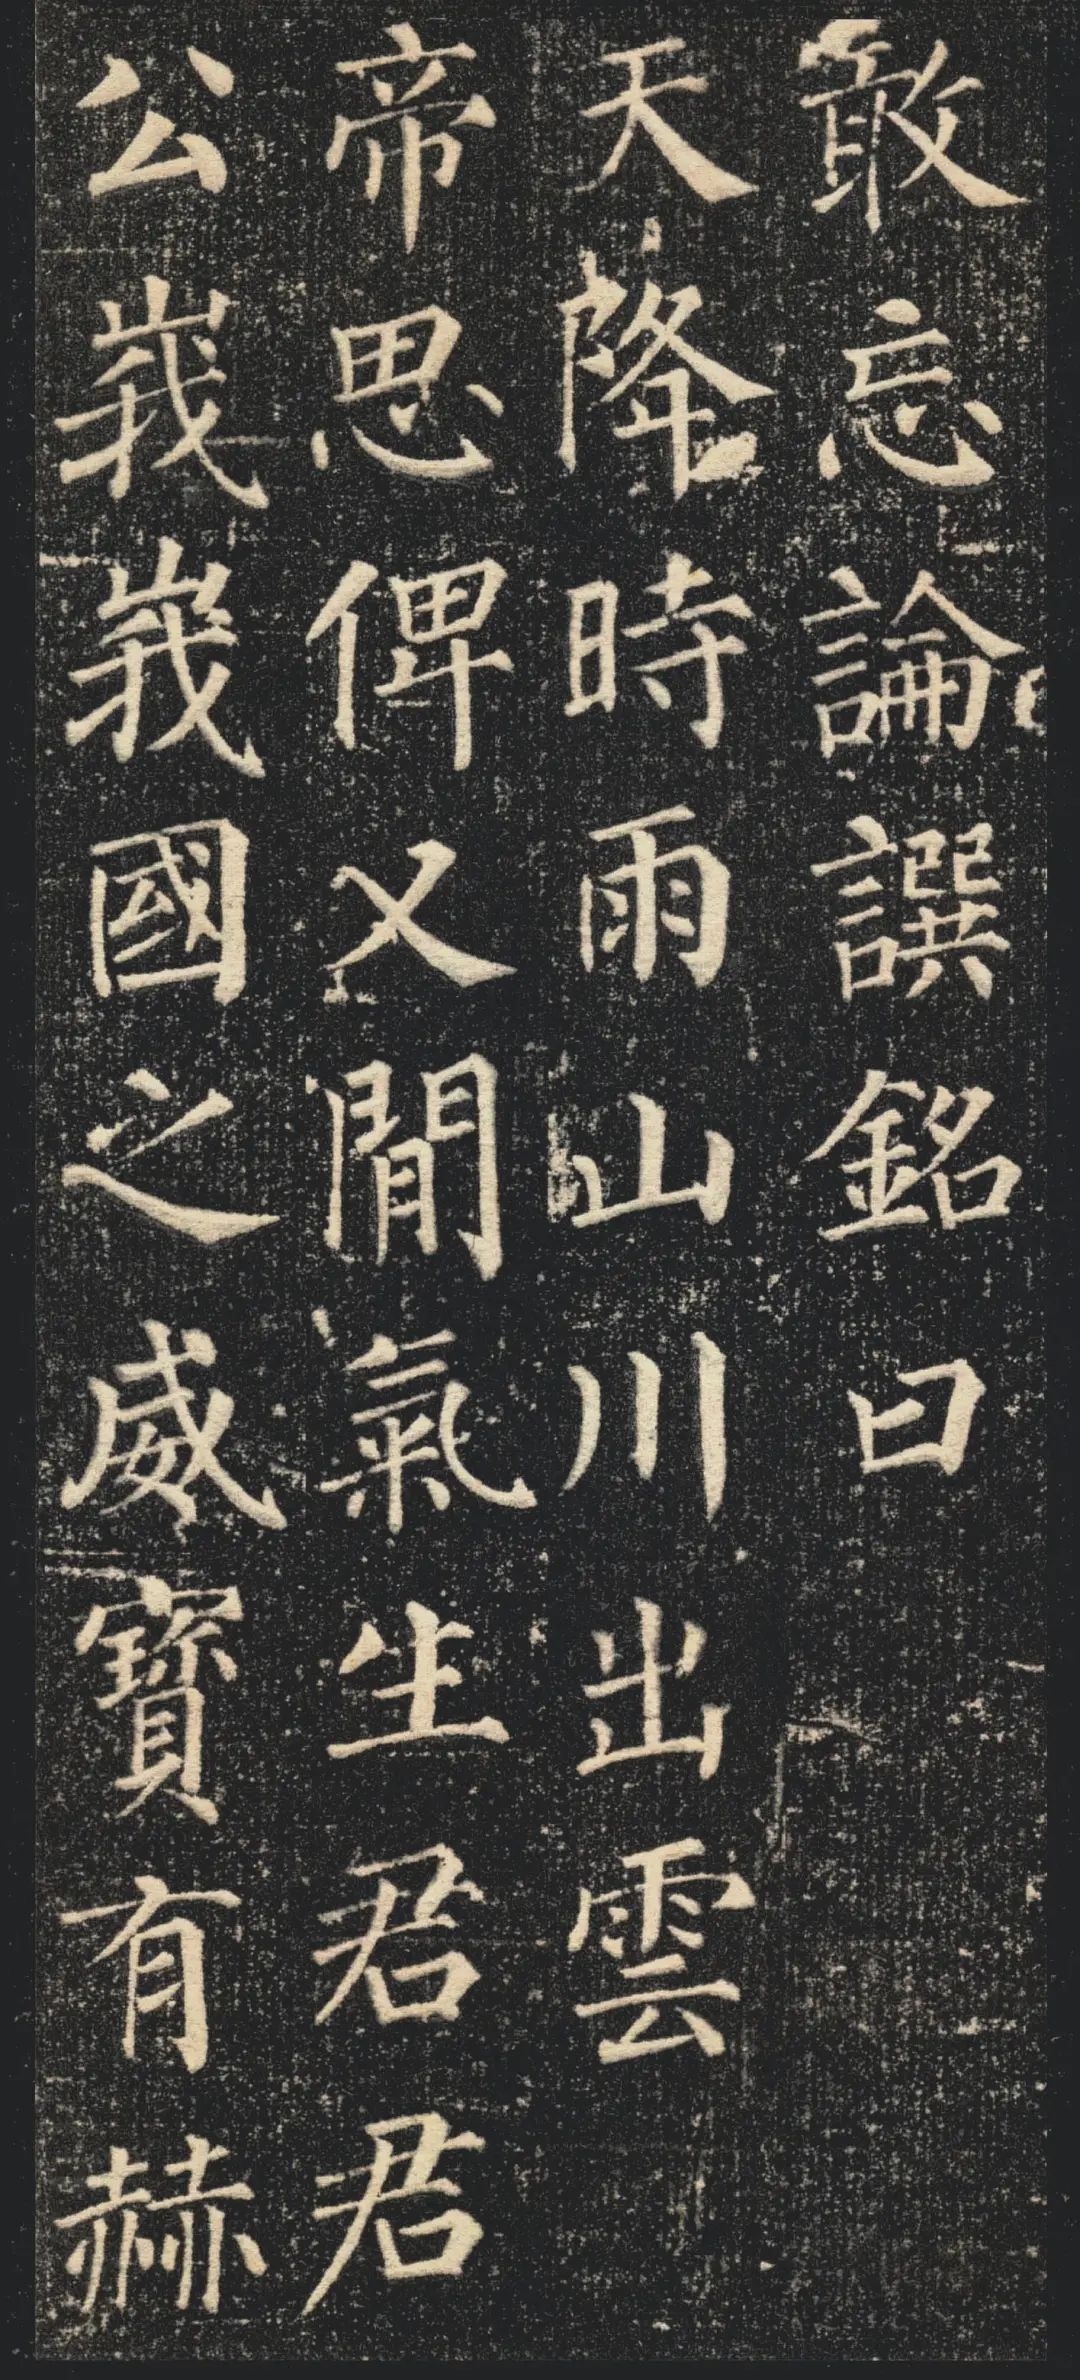 敢忘論譔銘曰
天降時雨山川出雲
帝思俾乂閒氣生君君
公峩峩國之威寶有赫